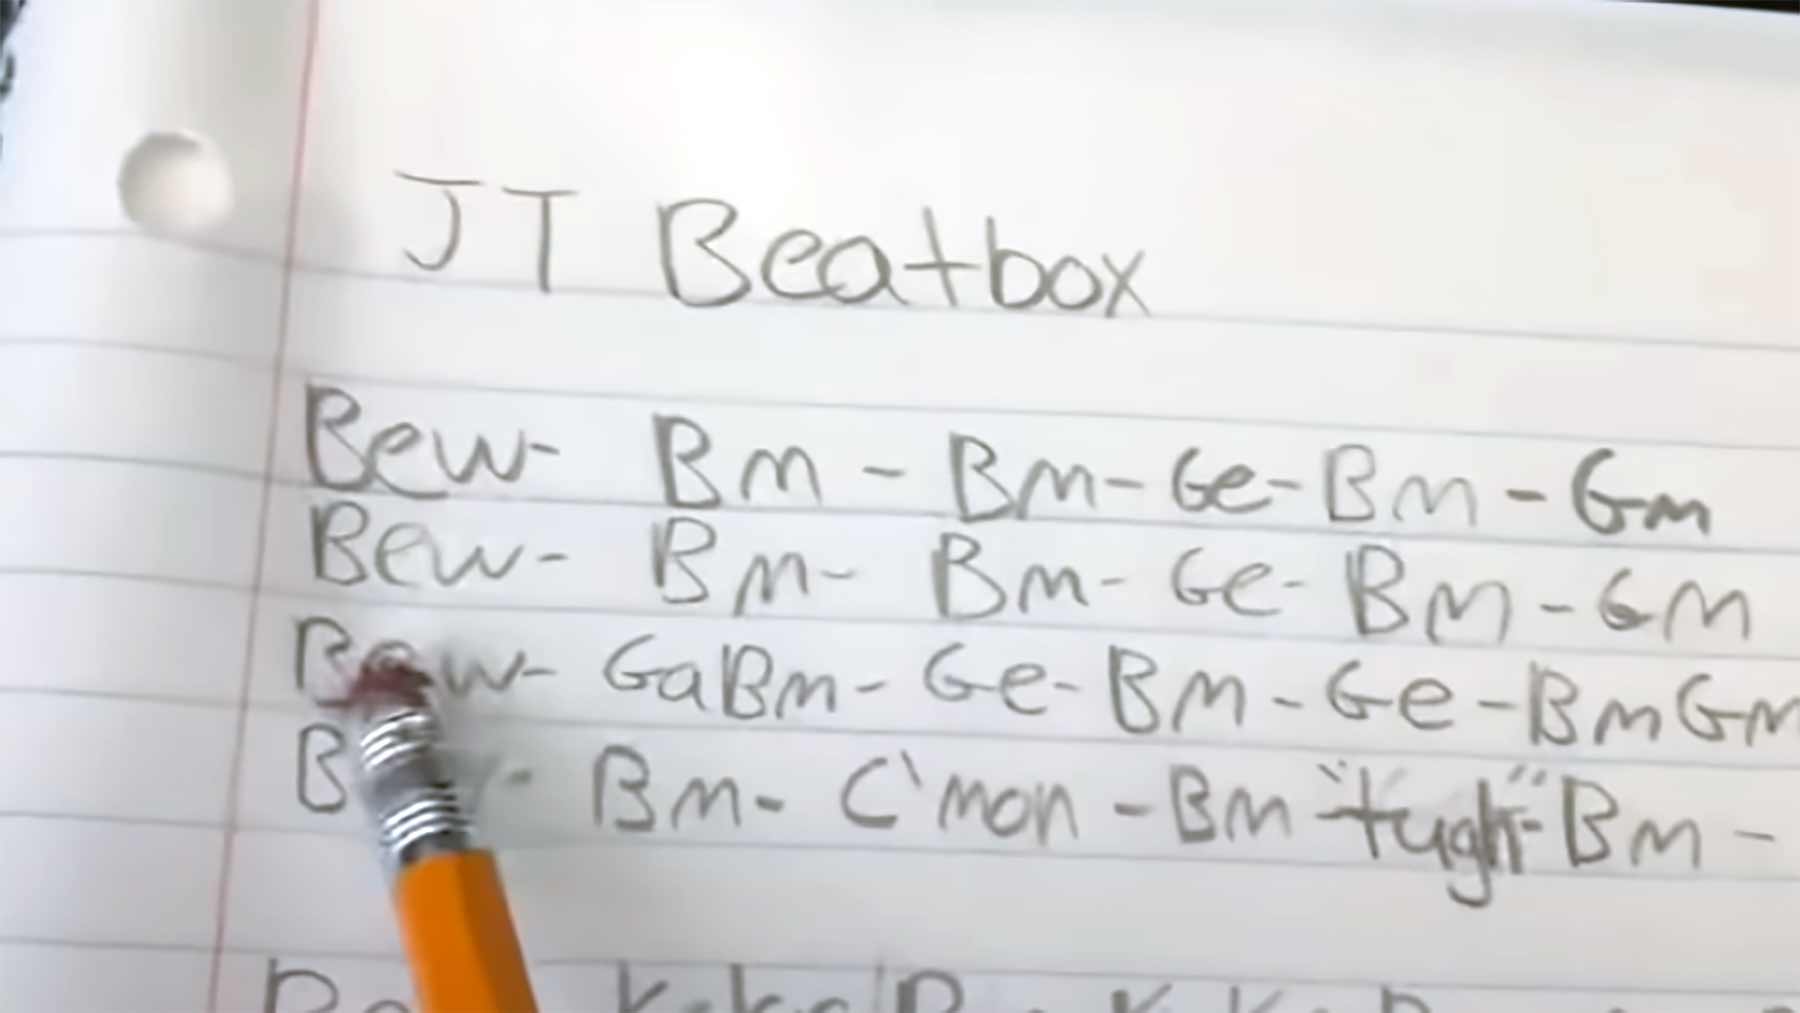 JT Beatbox
Bew- Bm - Bm- Ge- Bm - Gm
Bew- Bm- Bm- Ge- Bm - Gm
Bew- GaBm- Ge- Bm - Ge - BmGm
Bm- C'mon - Bm "tugh" Bm -